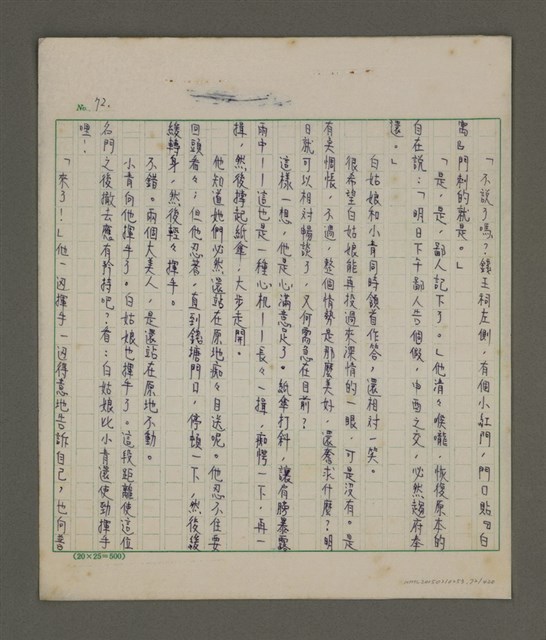 No. 72.
「不說了嗎?錢王祠左側,有個小紅門,門口貼『白
寓』門刺的就是。」
「是,是,鄙人記下了。」他清々喉嚨,恢復原本的
自在說:「明日下午鄙人告個假,申酉之交,必然趨府奉
還。」
白姑娘和小青同時頷首作答,還相對一笑。
很希望白姑娘能再投過來深情的一眼,可是沒有。是
有矣惆悵,不過,整個情勢是那麼美好,還奢求什麼?明
日就可以相對暢談了,又何需急在目前?
這樣一想,他是心滿意足了。紙傘打斜,讓肩膀暴露
雨中——這也是一種心机——長々一揖,痴愕一下,再一
揖,然後撐起紙傘,大步走開。
他知道她們必然還站在原地痴々目送呢。他忍不住要
回頭看々;但他忍著,直到錢塘門口,停頓一下,然後緩
緩轉身,然後輕々揮手。
不錯。兩個大美人,是還站在原地不動。
小青向他揮手了。白姑娘也揮手了。這段距離使這位
名門之後撤去應有矜持吧?看:白姑娘比小青還使勁揮手
哩!
「來了!」他一迴揮手一迴得意地告訴自己,也向著
(20×25=500)